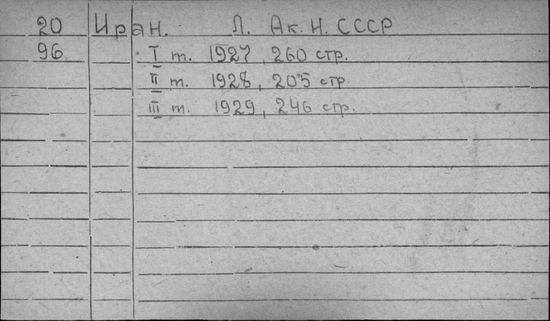 20 Иран. Л. Ак. Н. СССР
96 I т. 1927, 260 стр.
II т. 1928, 205 стр.
III т. 1929, 246 стр.